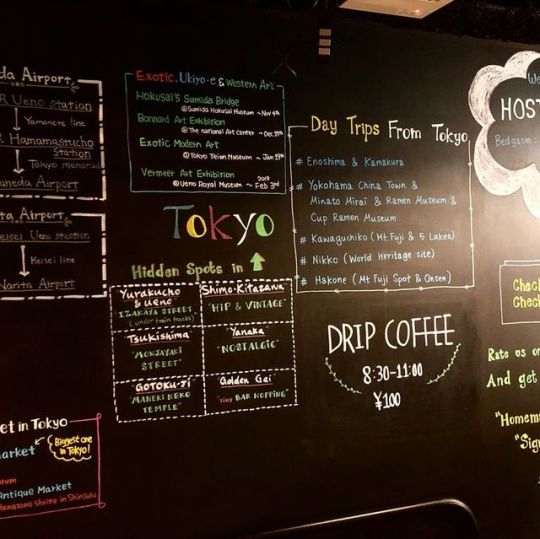 da Airport
R Ueno station
Yamanote line
& Hamamastucho
Station
Tokyo monorail
aneda Airport
ita Airport
eisei Ueno station
Keisei line
Narita Airport
et in Tokyo
arket
Biggest one
in Tokyo!
rum
Antique Market
Hanazono shrine in Shinjuku
Exotic, Ukiyo-e & Western Art
Hokusai's Sumida Bridge
@Sumida Hokusai Museum ~Nov 4th
Bonnard Art Exhibition
@The national Art center ~Dec 17th
Exotic Modern Art
@Tokyo Teien Museum ~Jan 14th
Vermeer Art Exhibition 2019
@Ueno Royal Museum ~ Feb 3rd
Tokyo
Hidden Spots in
Yurakucho
& Ueno
"IZAKAYA STREET"
(under train tracks)
Shimo-Kitazawa
"HIP & VINTAGE"
Tsukishima
"MONJAYAKI
STREET"
Yanaka
"NOSTALGIC"
GOTOKU-JI
"MANEKI NEKO
TEMPLE"
Golden Gai
"tiny BAR HOPPING"
Day Trips From Tokyo
# Enoshima & Kamakura
# Yokohama China Town &
Minato Mirai & Ramen Museum &
Cup Ramen Museum
# Kawaguchiko (Mt.Fuji & 5 Lakes)
# Nikko (World Heritage site)
# Hakone (Mt Fuji Spot & Onsen)
DRIP COFFEE
8:30-11:00
¥100
We
HOST
Bedgasm
Check
Check
Rate us on
And get
"Homem
"Sig